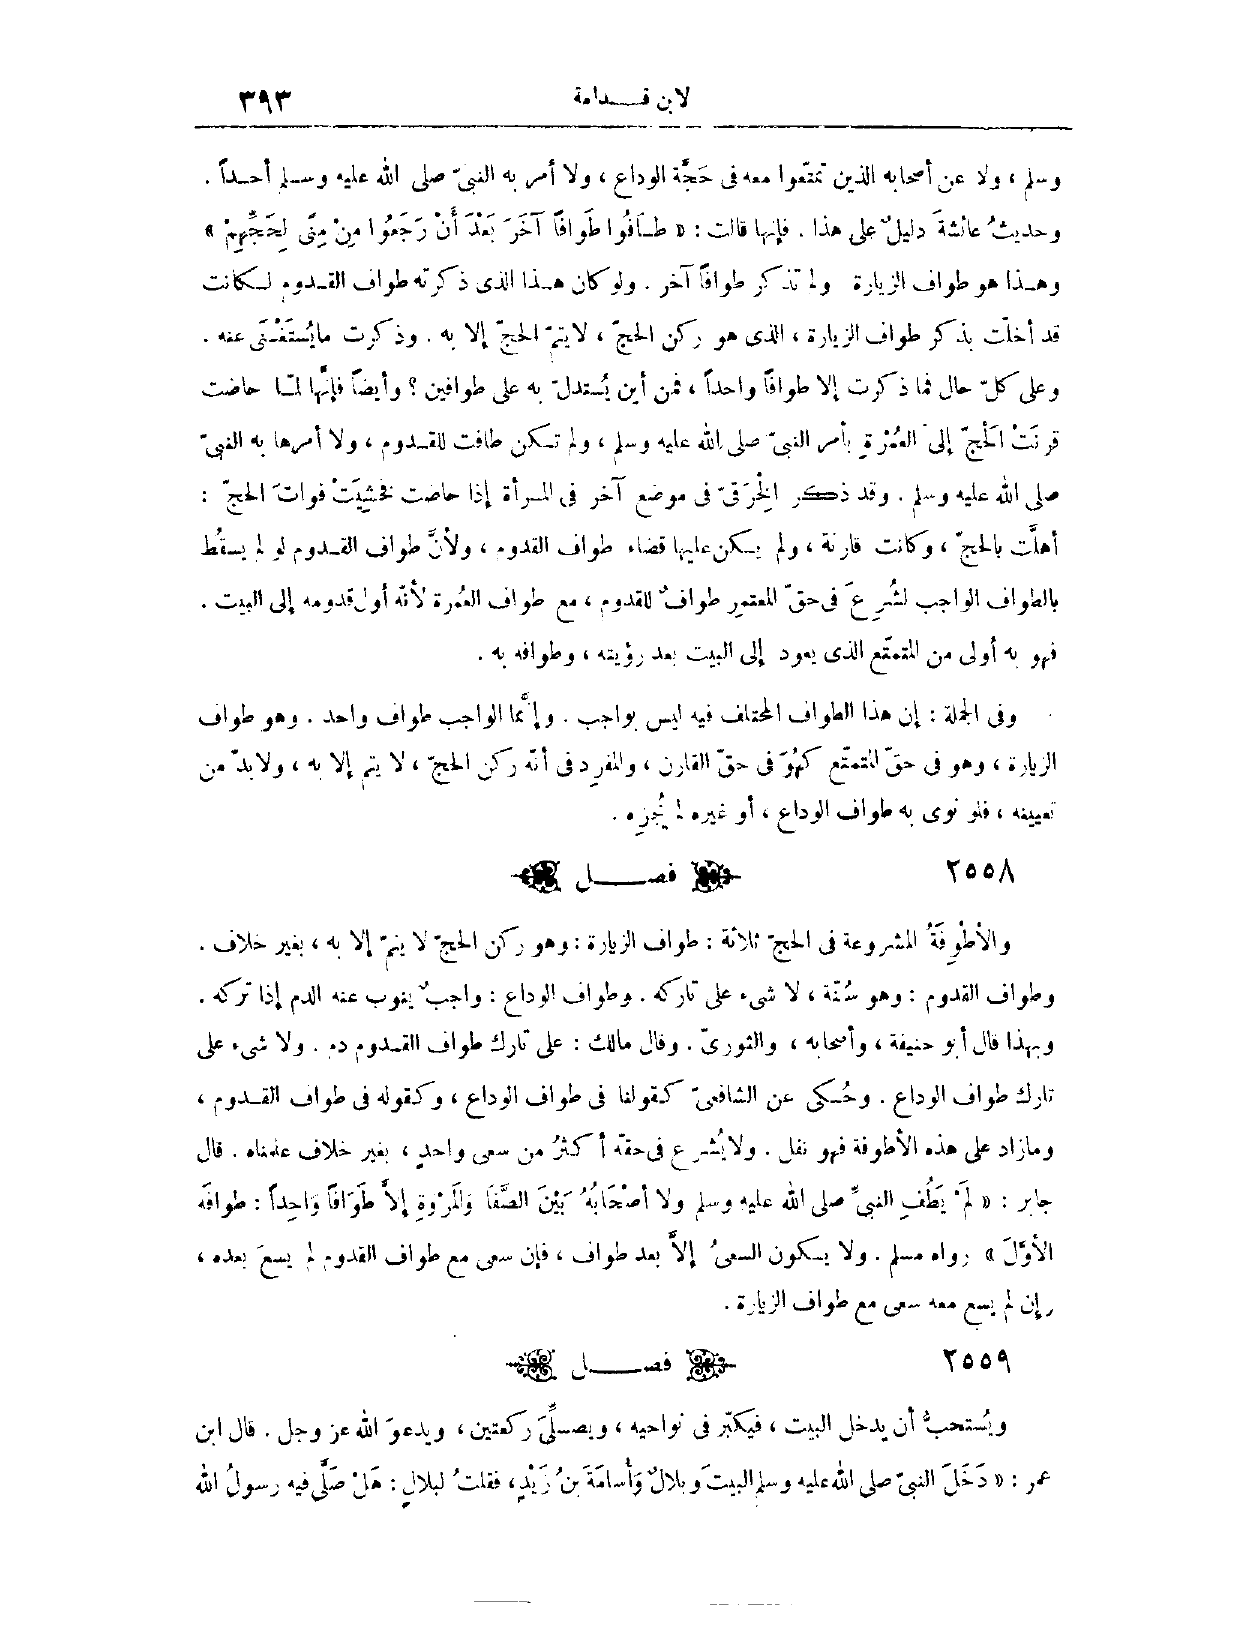 لابن قدامة ٣٩٣
وسلم ، ولا عن أصحابه الذين تمتّعوا معه فى حَجَّة الوداع ، ولا أمر به النبىّ صلى الله عليه وسلم أحداً .
وحديثُ عائشةَ دليلٌ على هذا . فإنها قالت : « طَافُوا طَوَافاً آخَرَ بَعْدَ أَنْ رَجَعُوا مِنْ مِنًى لِحَجِّهِمْ »
وهذا هو طواف الزيارة ولم تذكر طوافاً آخر . ولو كان هذا الذى ذكرته طواف القدوم لكانت
قد أخلّت بذكر طواف الزيارة ، الذى هو ركن الحجّ ، لا يتمّ الحجّ إلا به . وذكرت مايُستَغْنَى عنه .
وعلى كلّ حال فما ذكرت إلا طوافاً واحداً ، فمن أين يُستدلّ به على طوافين ؟ وأيضاً فإنَّها لمّا حاضت
قرنَتْ الَحجّ إلى العُمْرَةِ بأمر النبىّ صلى الله عليه وسلم ، ولم تكن طافت للقدوم ، ولا أمرها به النبىّ
صلى الله عليه وسلم . وقد ذكر الِخْرَقىّ فى موضع آخر فى المرأة إذا حاضت فخشِيَتْ فواتَ الحجّ :
أهلَّت بالحجّ ، وكانت قارنة ، ولم يكن عليها قضاء طواف القدوم ، ولأنَّ طواف القدوم لو لم يسقُط
بالطواف الواجب لشُرِعَ فى حقّ المعتمِر طوافٌ للقدوم ، مع طواف العُمرة لأنّه أول قدومه إلى البيت .
فهو به أولى من المتمتّع الذى يعود إلى البيت بعد رؤيته ، وطوافه به .
وفى الجملة : إن هذا الطواف المختلف فيه ليس بواجب . وإنَّما الواجب طواف واحد . وهو طواف
الزيارة ، وهو فى حقّ المتمتّع كهُوَ فى حقّ القارن ، والمفرِد فى أنّه ركن الحجّ ، لا يتم إلا به ، ولابدّ من
تعيينه ، فلو نوى به طواف الوداع ، أو غيره لم يُجزِه .
٢٥٥٨ فصل
والأطْوِفَةُ المشروعة فى الحجّ ثلاثة : طواف الزيارة : وهو ركن الحجّ لا يتمّ إلا به ، بغير خلاف .
وطواف القدوم : وهو سُنّة ، لا شىء على تاركه . وطواف الوداع : واجبٌ ينوب عنه الدم إذا تركه .
وبهذا قال أبو حنيفة ، وأصحابه ، والثورىّ . وقال مالك : على تارك طواف القدوم دم . ولا شىء على
تارك طواف الوداع . وحُكى عن الشافعىّ كقولنا فى طواف الوداع ، وكقوله فى طواف القدوم ،
ومازاد على هذه الأطوفة فهو نفل . ولا يُشرع فى حقّه أكثرُ من سعى واحدٍ ، بغير خلاف علمناه . قال
جابر : « لَمْ يَطُفِ النبىّ صلى الله عليه وسلم ولا أصْحَابُهُ بَيْنَ الصَّفَا وَالمَرْوَةِ إلاَّ طَوَافاً وَاحِداً : طوافَه
الأوّلَ » رواه مسلم . ولا يكون السعىُ إلاَّ بعد طواف ، فإن سعى مع طواف القدوم لم يسعَ بعده ،
وإن لم يسع معه سعى مع طواف الزيارة .
٢٥٥٩ فصل
ويُستحبُّ أن يدخل البيت ، فيكبّر فى نواحيه ، ويصلِّىَ ركعتين ، ويدعوَ الله عز وجل . قال ابن
عمر : « دَخَلَ النبىّ صلى الله عليه وسلم البيتَ وبلالٌ وَأسامَةَ بنُ زَيْدٍ ، فقلتُ لبلالٍ : هَلْ صَلَّى فيه رسولُ الله